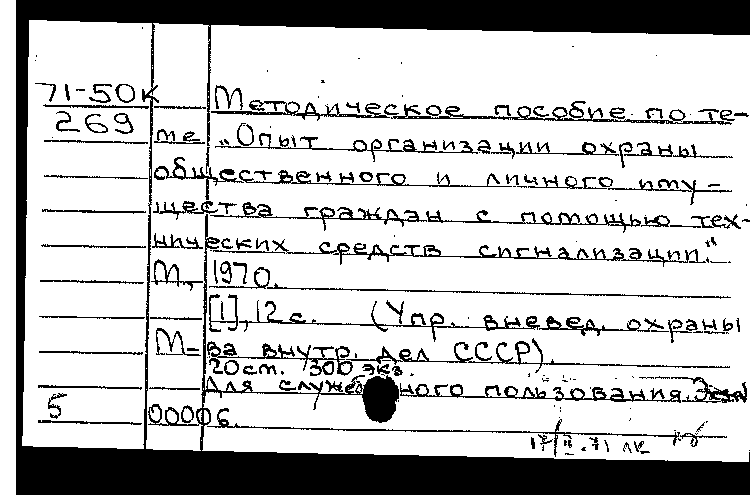 71-50К Методическое пособие по те-
269 ме „Опыт организации охраны
общественного и личного иму-
щества граждан с помощью тех-
нических средств сигнализации."
М., 1970.
[1], 12 с. (Упр. вневед. охраны
М-ва внутр. дел СССР).
20 см. 300 экз.
Для служебного пользования. Экз. N
5 00006.
17/II.71 лк